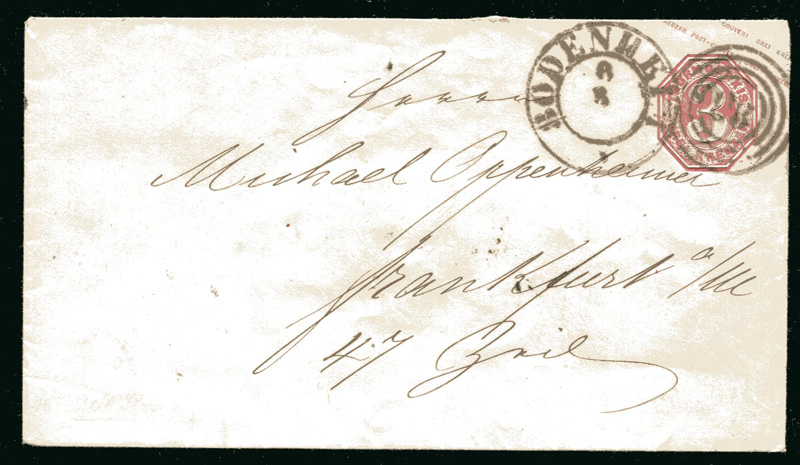 COUVERT DREI
POST-
BODENHEI
8
5
3
Herrn
Michael Oppenheimer
Frankfurt a/M
47 Zeil